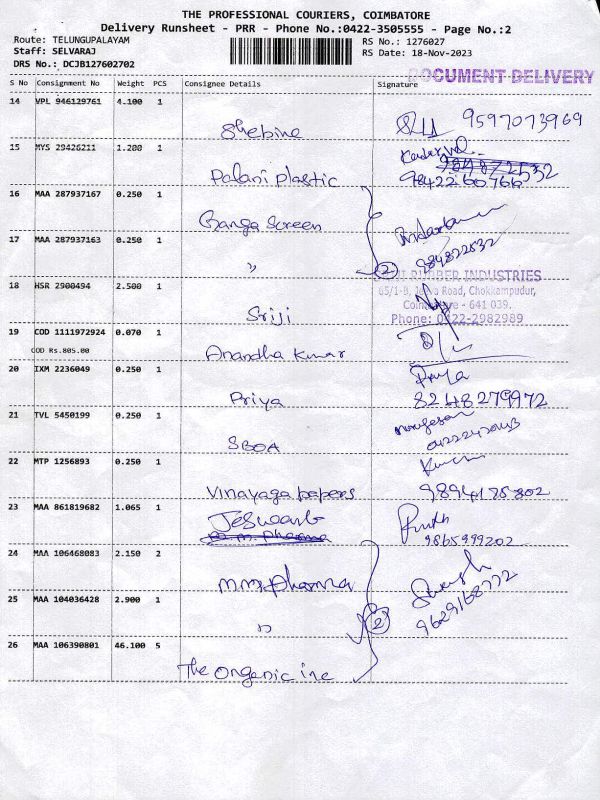 THE PROFESSIONAL COURIERS, COIMBATORE
Delivery Runsheet - PRR - Phone No.:0422-3505555 - Page No.:2
Route: TELUNGUPALAYAM
Staff: SELVARAJ
DRS No.: DCJB127602702
RS No.: 1276027
RS Date: 18-Nov-2023
DOCUMENT DELIVERY
S No Consignment No Weight PCS Consignee Details Signature
14 VPL 946129761 4.100 1
Shebine 9597073969
15 MYS 29426211 1.200 1
Palani plastic 9842260766
16 MAA 287937167 0.250 1
Ganga Screen
17 MAA 287937163 0.250 1
" 2
18 HSR 2900494 2.500 1
RUBBER INDUSTRIES
Road, Chokkampudur,
Coimbatore - 641 039.
Phone: 0422-2982989
Sriji
19 COD 1111972924 0.070 1
COD Rs.805.00
Anandha Kumar
20 IXM 2236049 0.250 1
Priya Priya
8248279972
21 TVL 5450199 0.250 1
SBOA murugesan
22 MTP 1256893 0.250 1
Vinayaga papers
23 MAA 861819682 1.065 1
9865999202
24 MAA 106468083 2.150 2
m.m. pharma
25 MAA 104036428 2.900 1
" 2 9629168772
26 MAA 106390801 46.100 5
The Organic ine